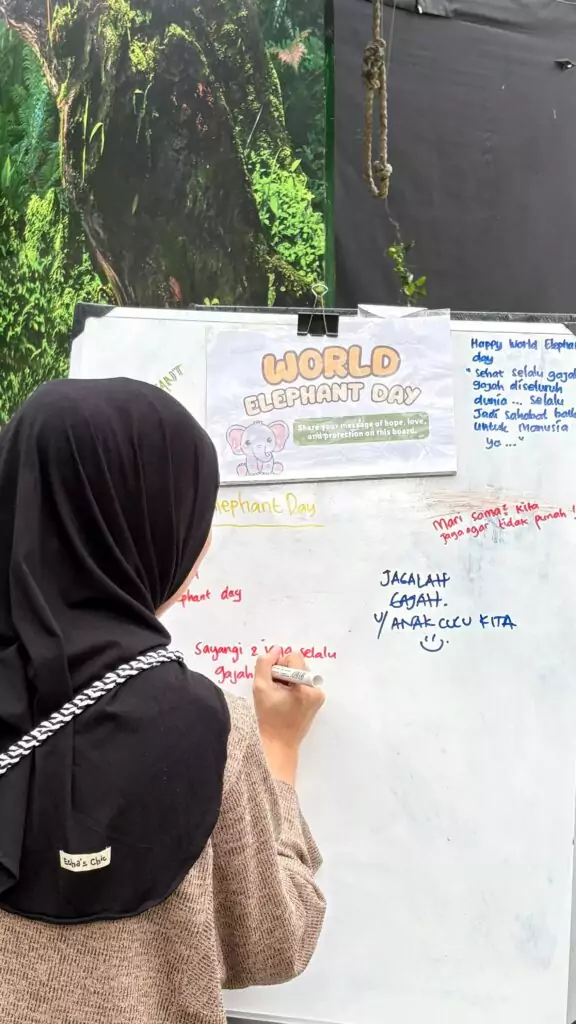 WORLD
ELEPHANT DAY
Share your message of hope, love,
and protection on this board.
Happy World Elephan
day
"Sehat selalu gajah
gajah diseluruh
dunia ... selalu
Jadi sahabat baik
untuk Manusia
ya ..."
Elephant Day
Mari sama² kita
jaga agar tidak punah !
phant day
JAGALAH
GAJAH.
U/ ANAK CUCU KITA
Sayangi & selalu
gajah